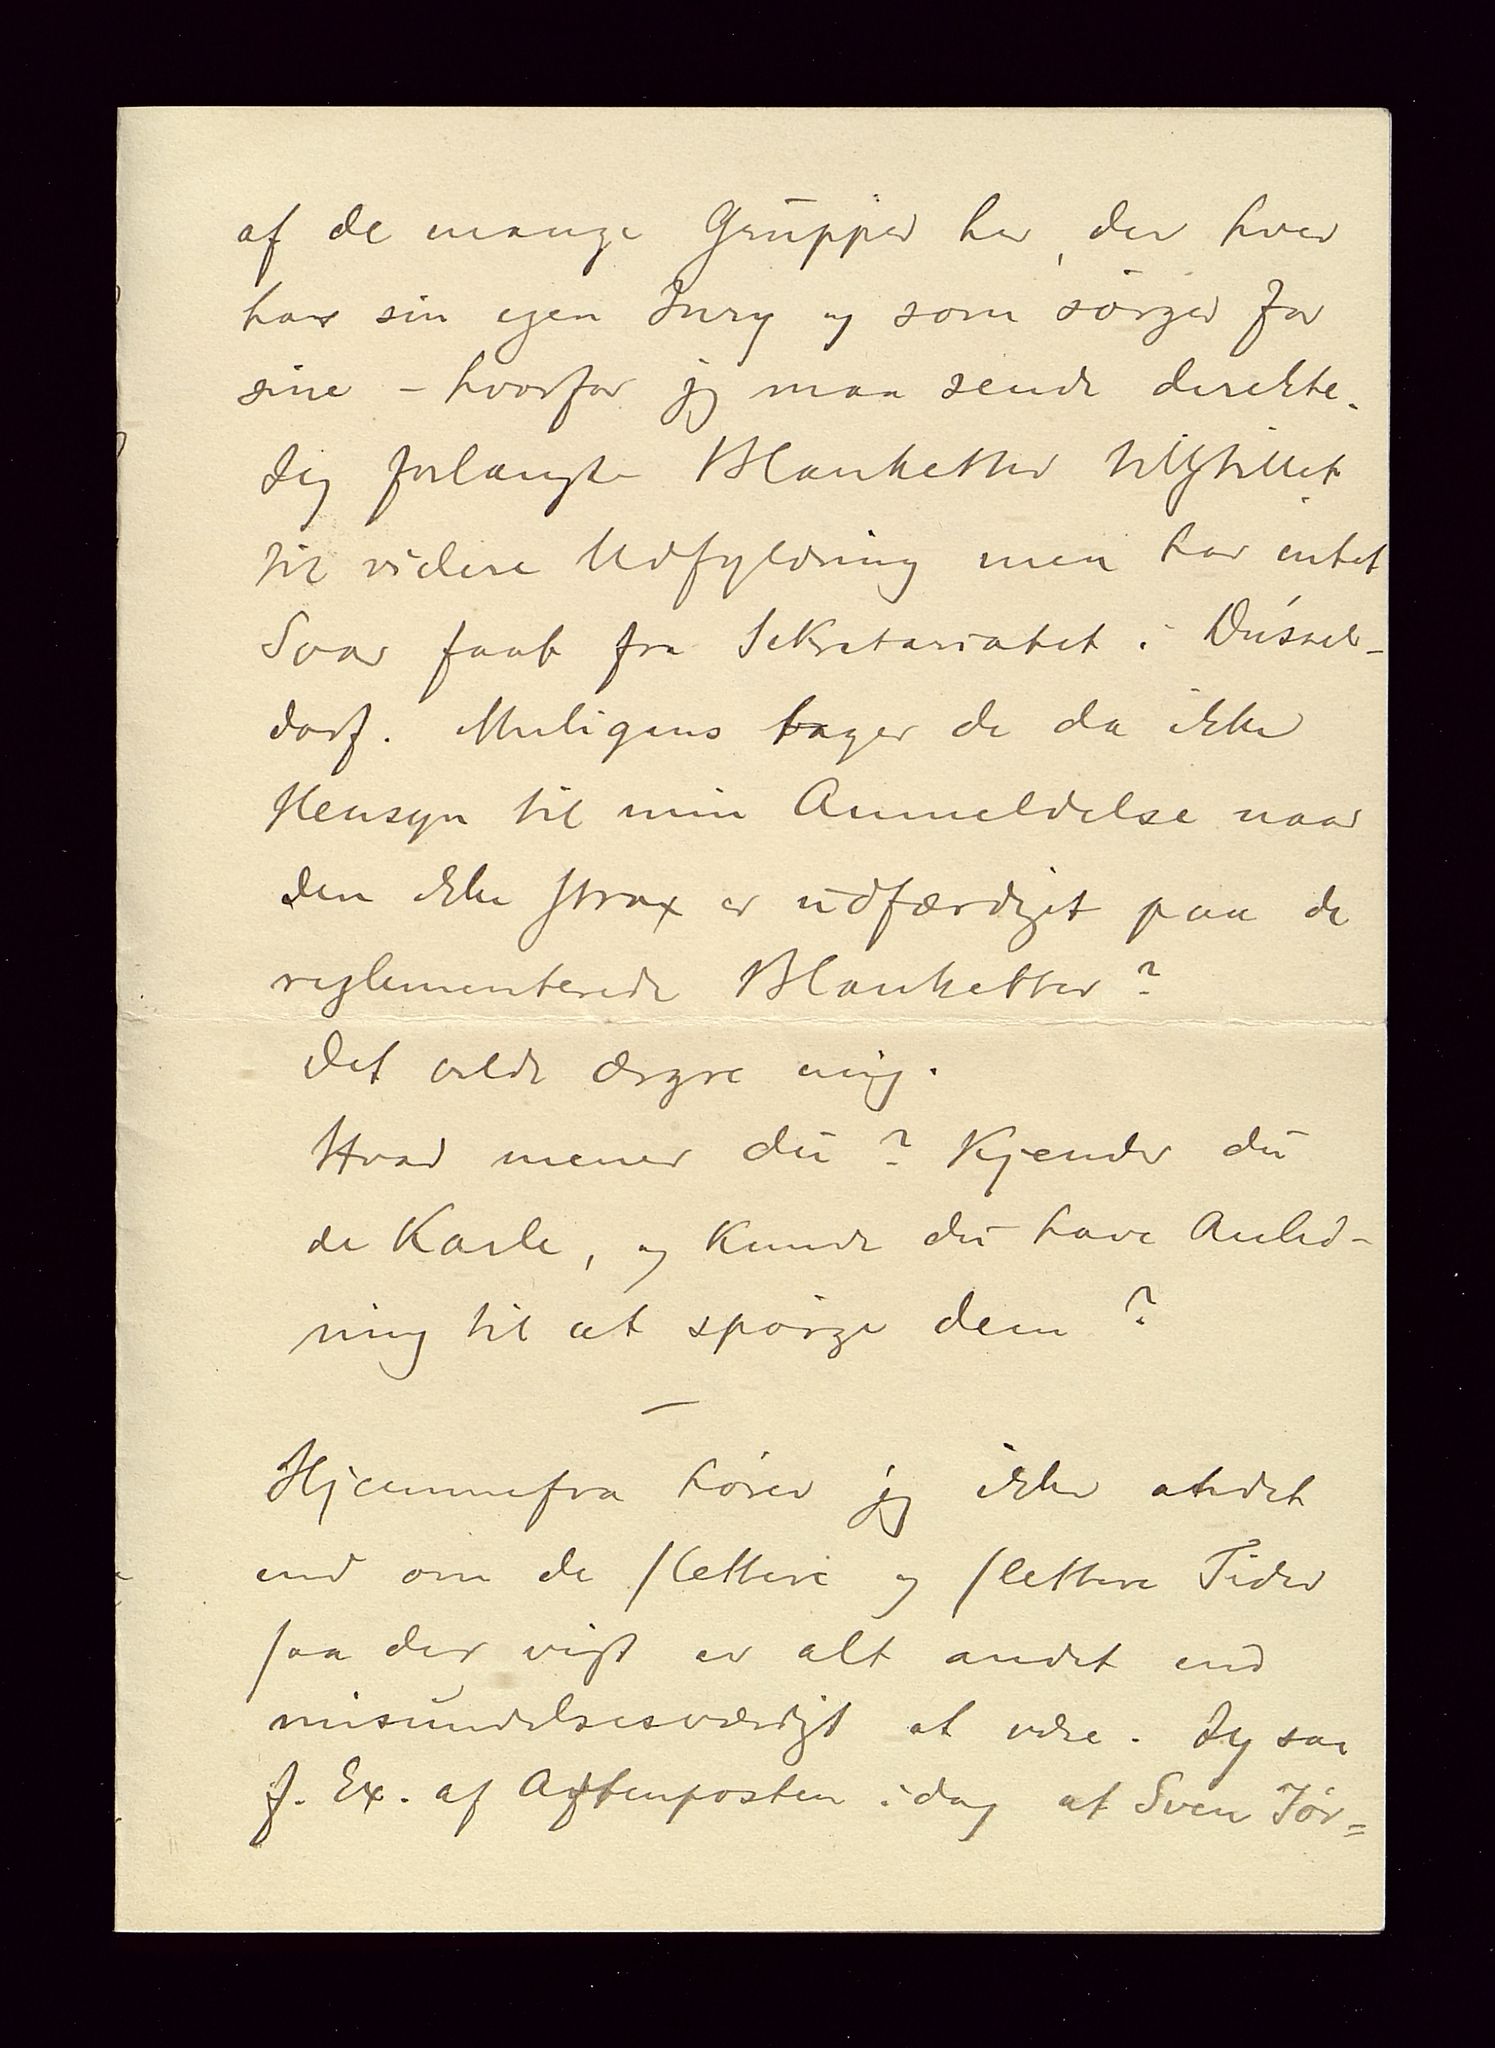 af de mange Grupper her, der hver
har sin egen Jury og som sørger for
sine – hvorfor jeg maa sende direkte.
Jeg forlangte Blanketter tilstillet
til videre Udfyldning men har intet
Svar faat fra Sekretariatet i Düssel-
dorf. Muligens tager de da ikke
Hensyn til min Anmeldelse naar
den ikke strax er udfærdiget paa de
reglementerede Blanketter?
Det vilde ærgre mig.
Hvad mener du? Kjender du
de Karle, og kunde du have Anled-
ning til at spørge dem?
—
Hjemmefra hører jeg ikke andet
end om de slettere og slettere Tider
saa der vist er alt andet end
misundelsesværdigt at være. Jeg saa
f. Ex. af Aftenposten idag at Sven Jør=